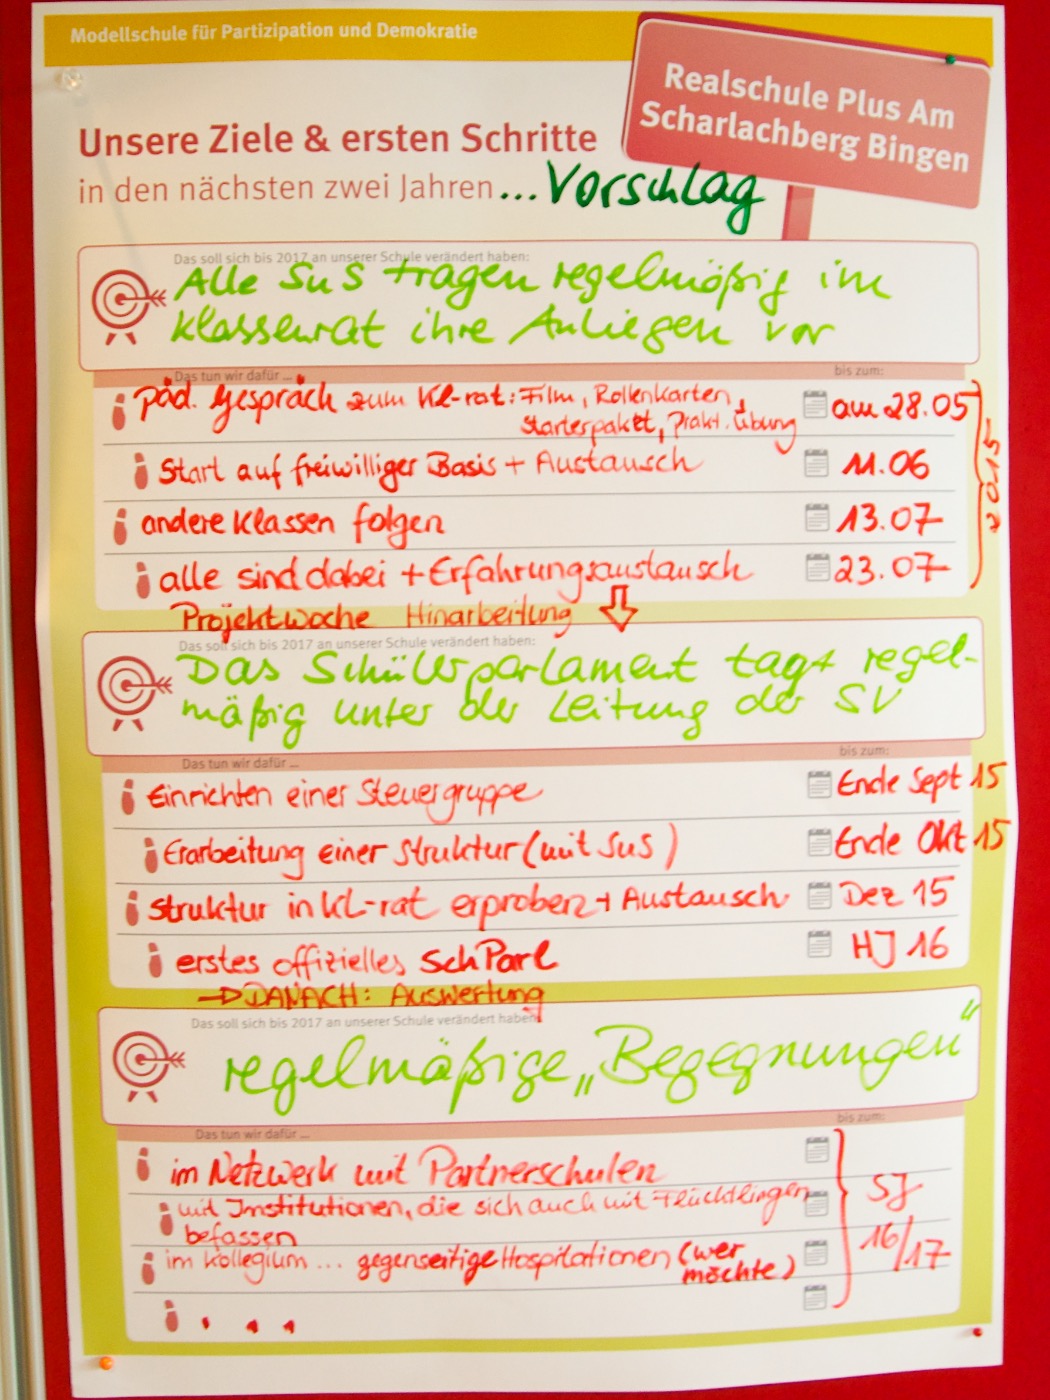 Modellschule für Partizipation und Demokratie
Realschule Plus Am
Scharlachberg Bingen
Unsere Ziele & ersten Schritte
in den nächsten zwei Jahren ... Vorschlag
Das soll sich bis 2017 an unserer Schule verändert haben:
Alle SuS tragen regelmäßig im
Klassenrat ihre Anliegen vor
Das tun wir dafür ...
bis zum:
Päd. Gespräch zum Kl-rat: Film, Rollenkarten,
Starterpaket, Prakt. Übung
am 28.05
Start auf freiwilliger Basis + Austausch
11.06
andere Klassen folgen
13.07
alle sind dabei + Erfahrungsaustausch
23.07
2015
Projektwoche Hinarbeitung
Das soll sich bis 2017 an unserer Schule verändert haben:
Das Schülerparlament tagt regel-
mäßig unter der Leitung der SV
Das tun wir dafür ...
bis zum:
Einrichten einer Steuergruppe
Ende Sept 15
Erarbeitung einer Struktur (mit SuS)
Ende Okt 15
Struktur in Kl-rat erproben + Austausch
Dez 15
erstes offizielles SchParl
HJ 16
DANACH: Auswertung
Das soll sich bis 2017 an unserer Schule verändert haben:
regelmäßige „Begegnungen“
Das tun wir dafür ...
bis zum:
im Netzwerk mit Partnerschulen
mit Institutionen, die sich auch mit Flüchtlingen
befassen
im Kollegium ... gegenseitige Hospitationen (wer
möchte)
SJ
16/17
. . .